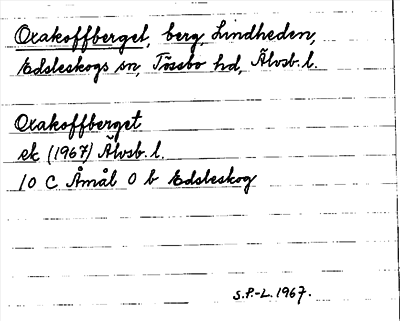 Oxakoffberget, berg, Lindheden,
Edsleskogs sn, Tössbo hd, Älvsb. l.
Oxakoffberget
ek (1967) Älvsb. l.
10 C Åmål 0 b Edsleskog
S.P.-L. 1967.